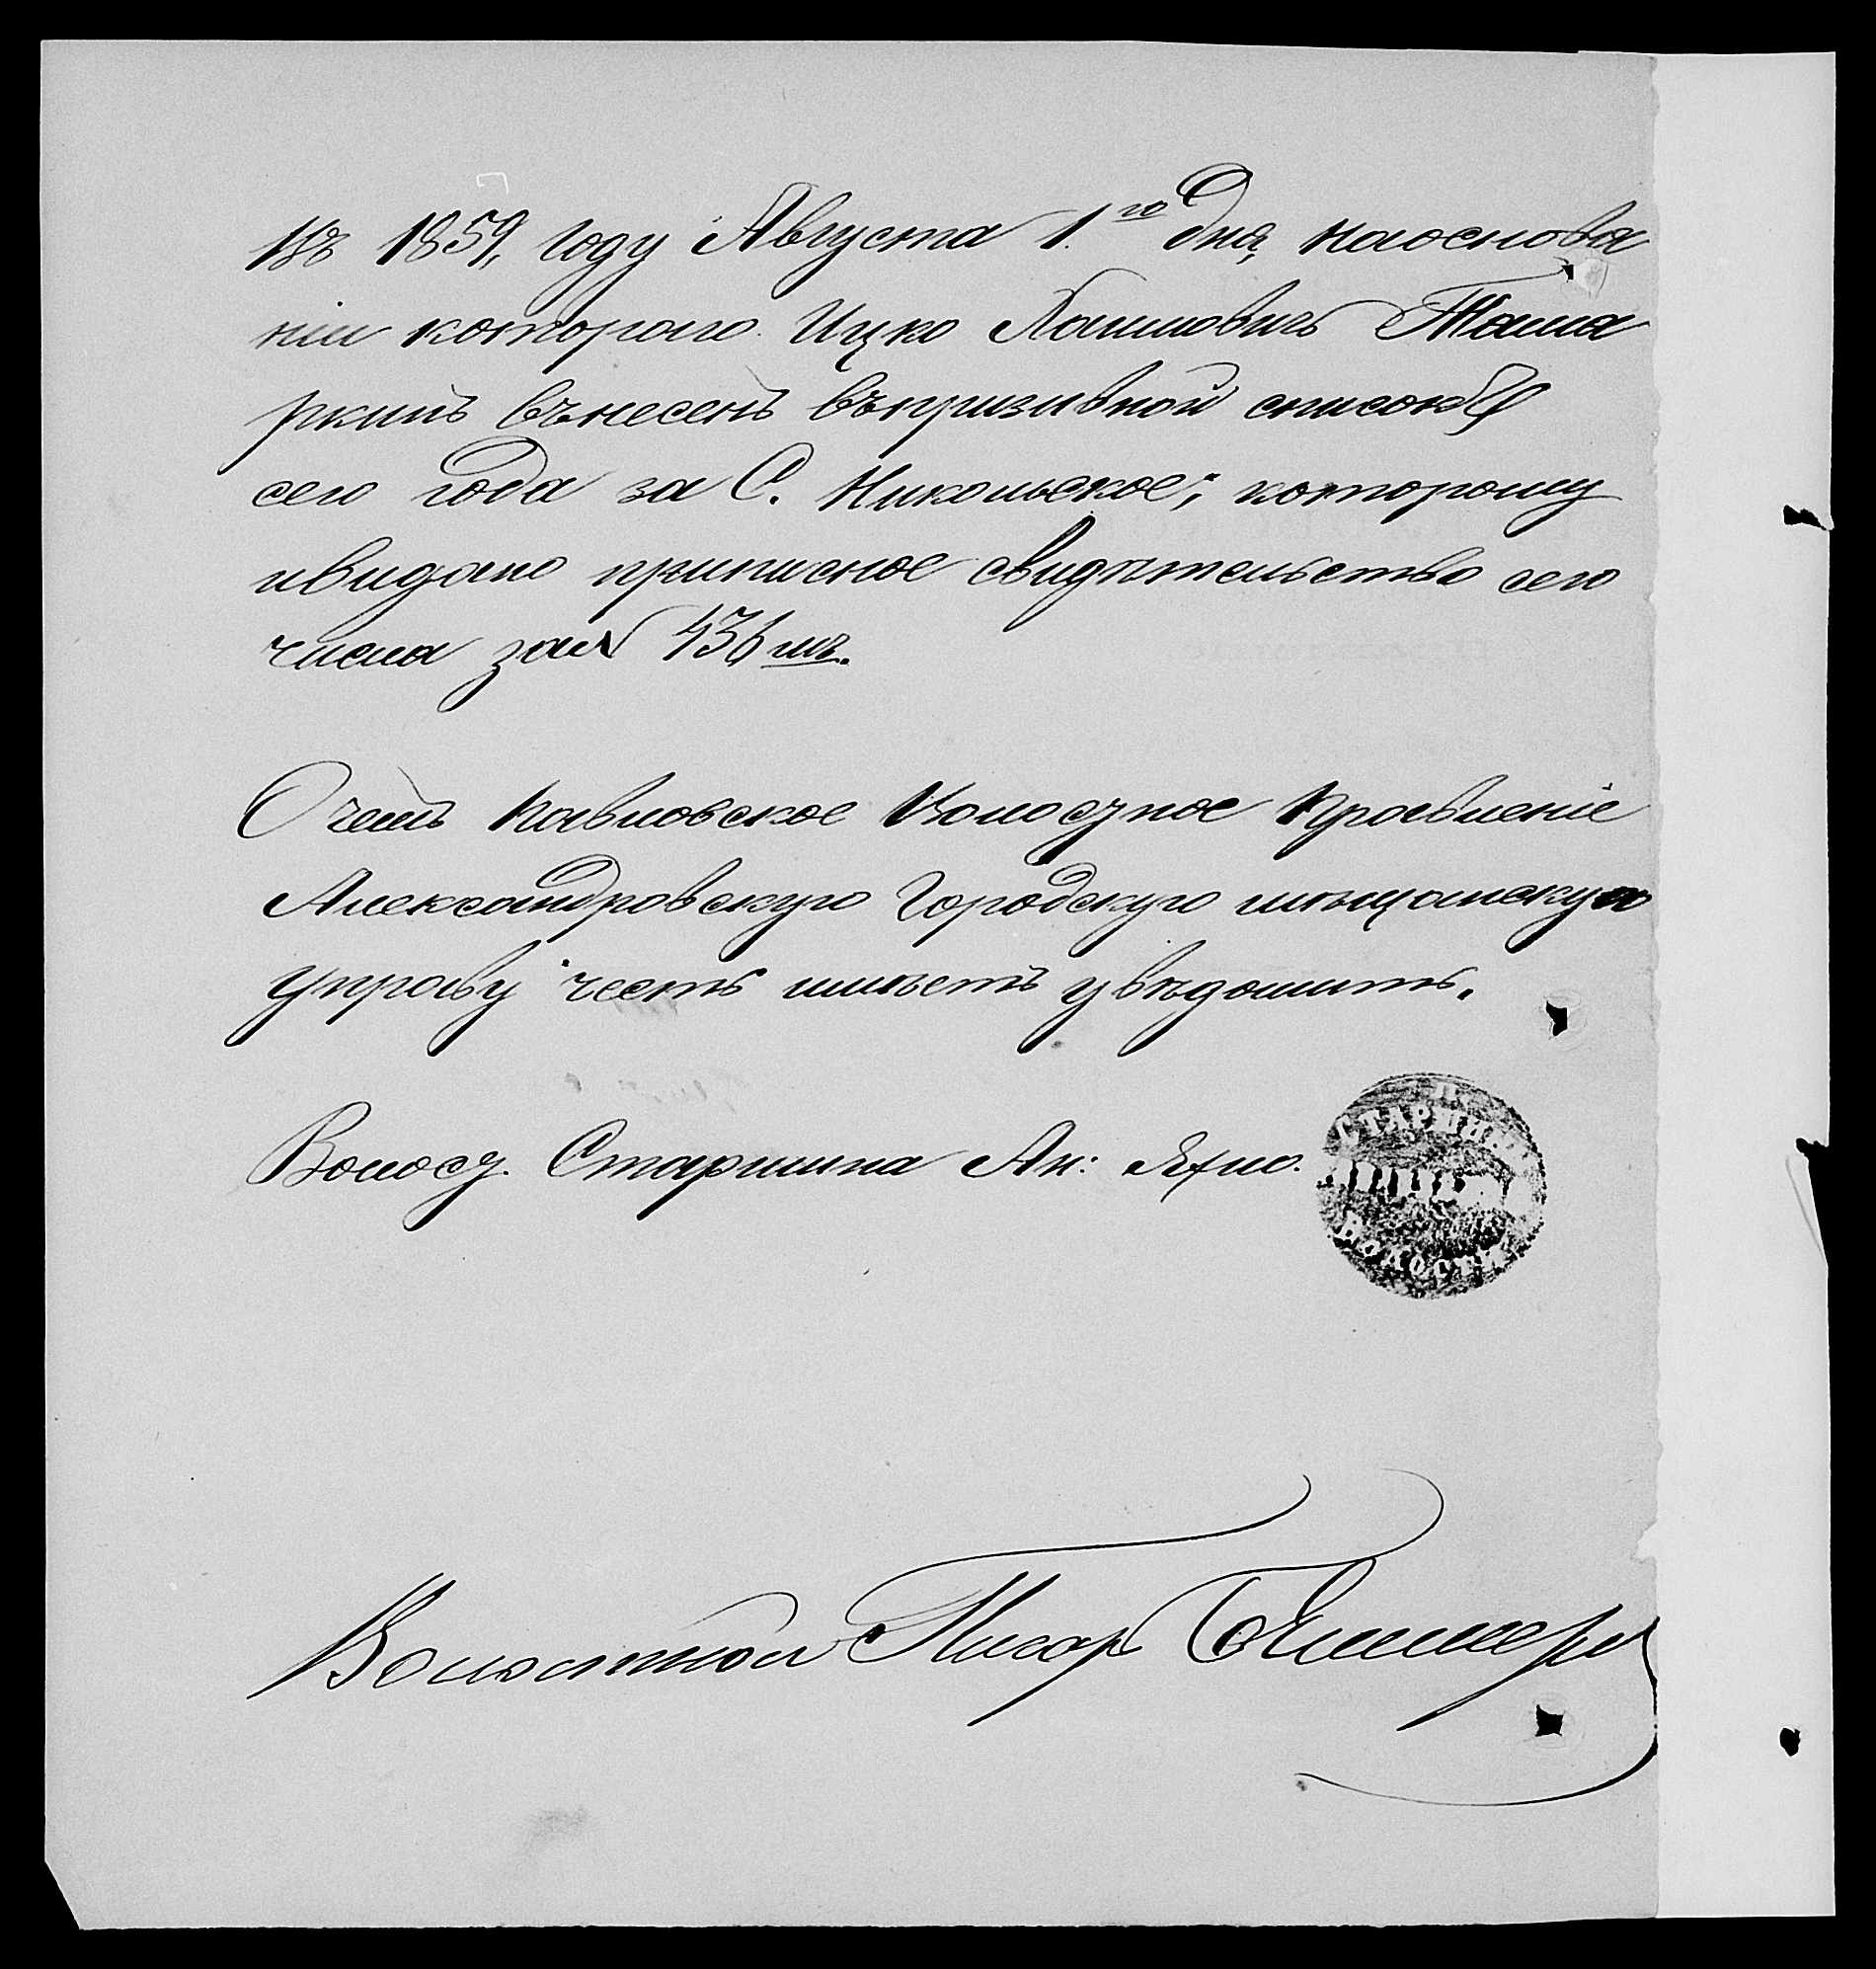 въ 1859, году Августа 1.го дня, наоснова
ніи котораго Ицко Хаимовичъ Тома
ркинъ вънесенъ въпризивной списокъ
сего года за С. Никольское, которому
ивидано приписное свидѣтельство сего
числа за № 436 мъ.
Очемъ Павловское Волосзное Правленіе
Александровскую Городскую мѣщанскую
управу честь имѣетъ увѣдомить.
Волосз. Старшина Ан: Яхно.
СТАРШИНЫ
ВОЛОСТИ
Волостной Писар